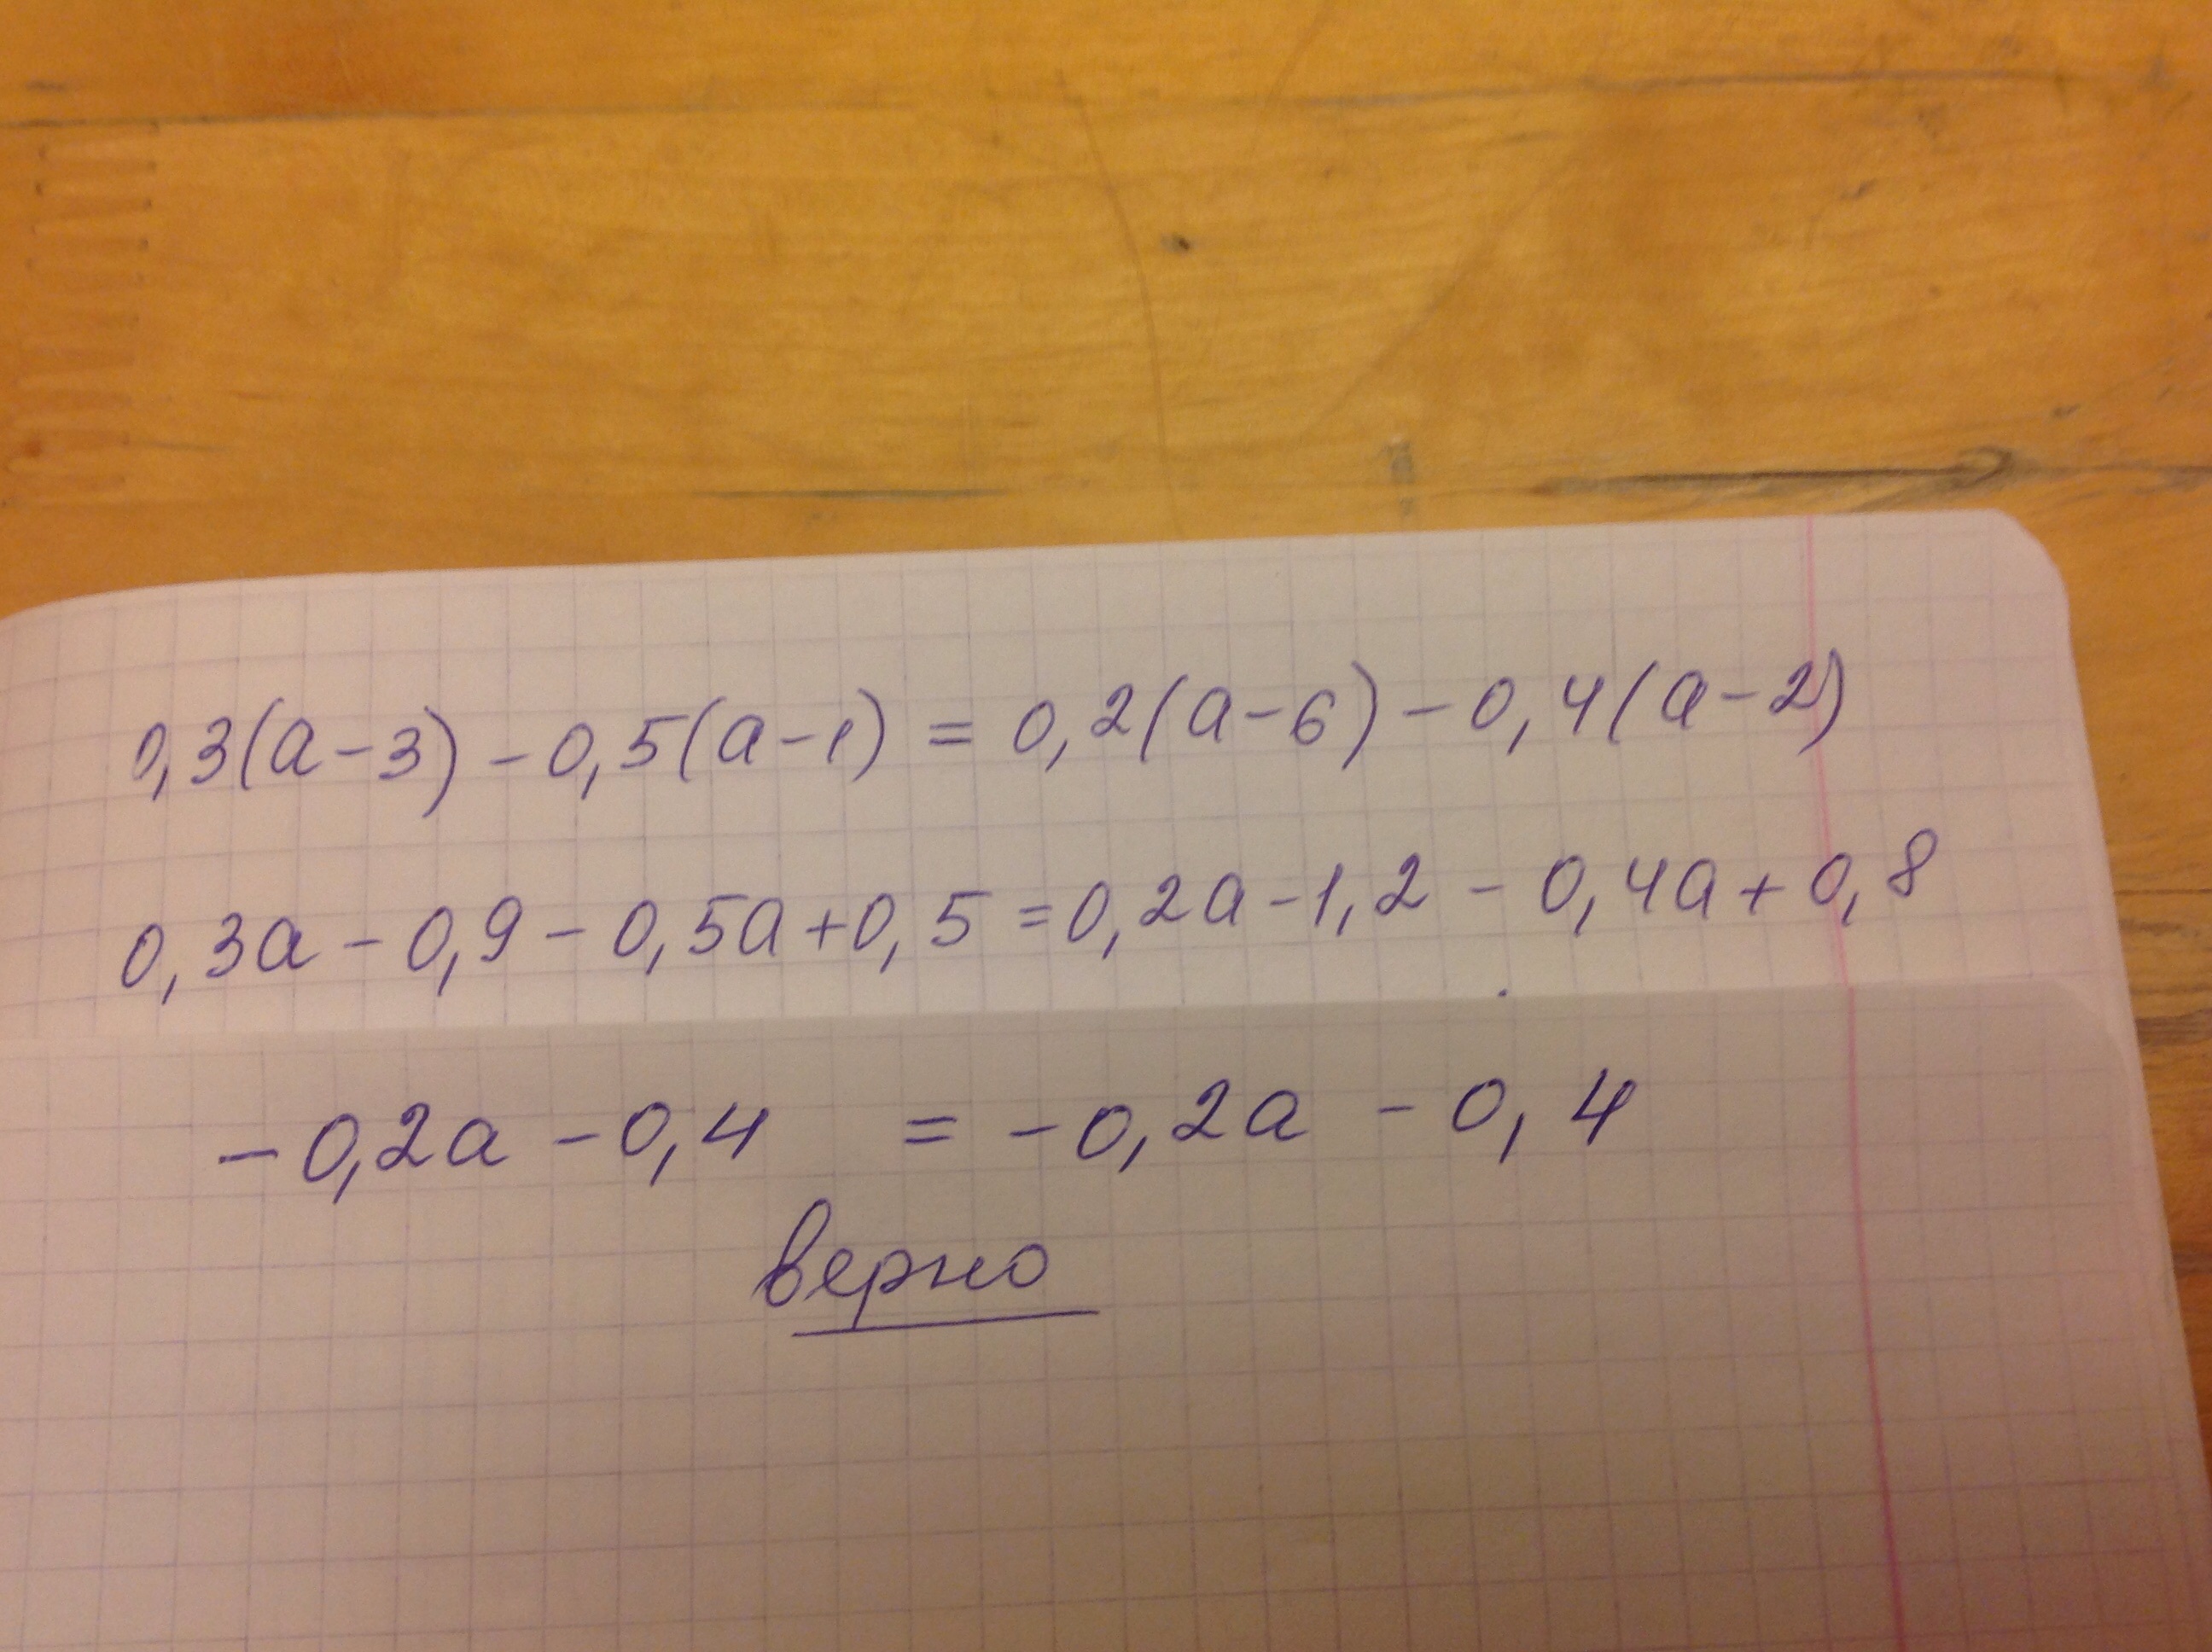 0,3(a-3)-0,5(a-1) = 0,2(a-6)-0,4(a-2)
0,3a-0,9-0,5a+0,5=0,2a-1,2-0,4a+0,8
-0,2a-0,4 = -0,2a-0,4
верно